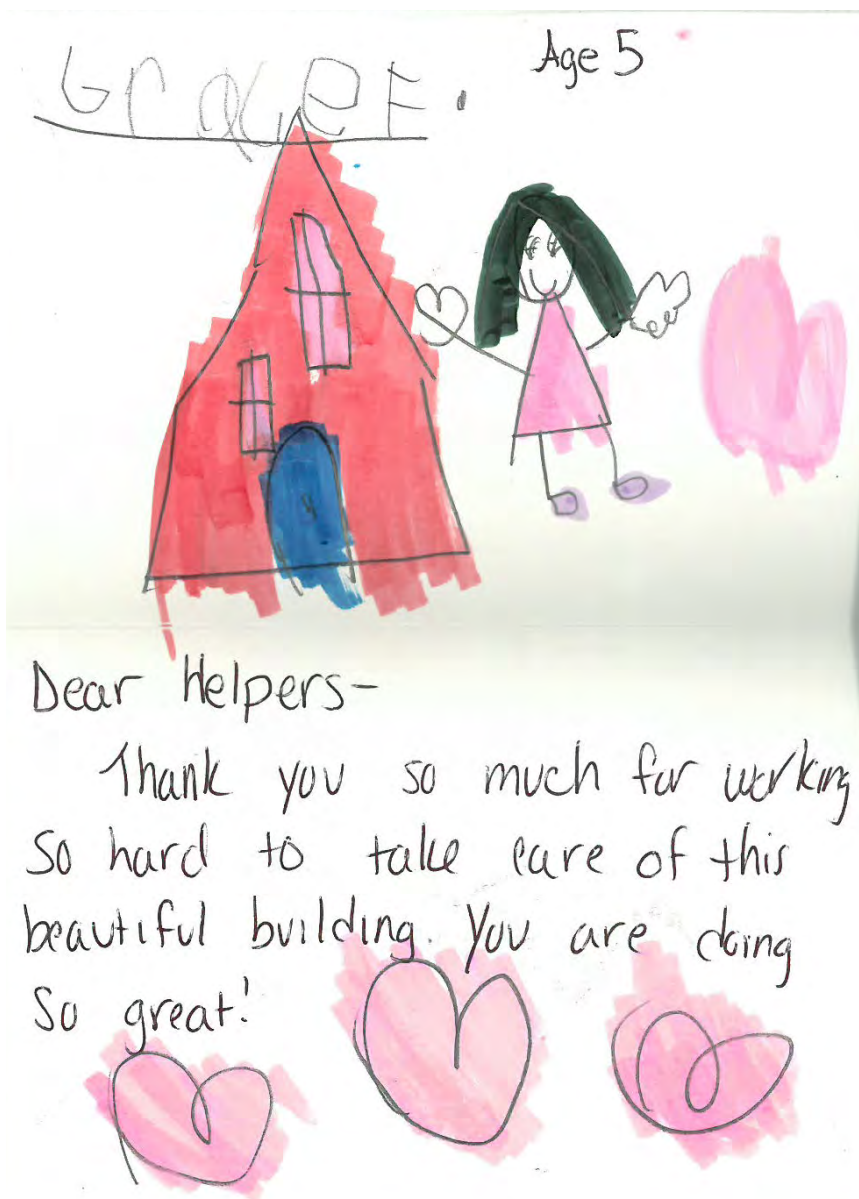 Grace F.
Age 5
Dear Helpers-
Thank you so much for working
so hard to take care of this
beautiful building. You are doing
so great!